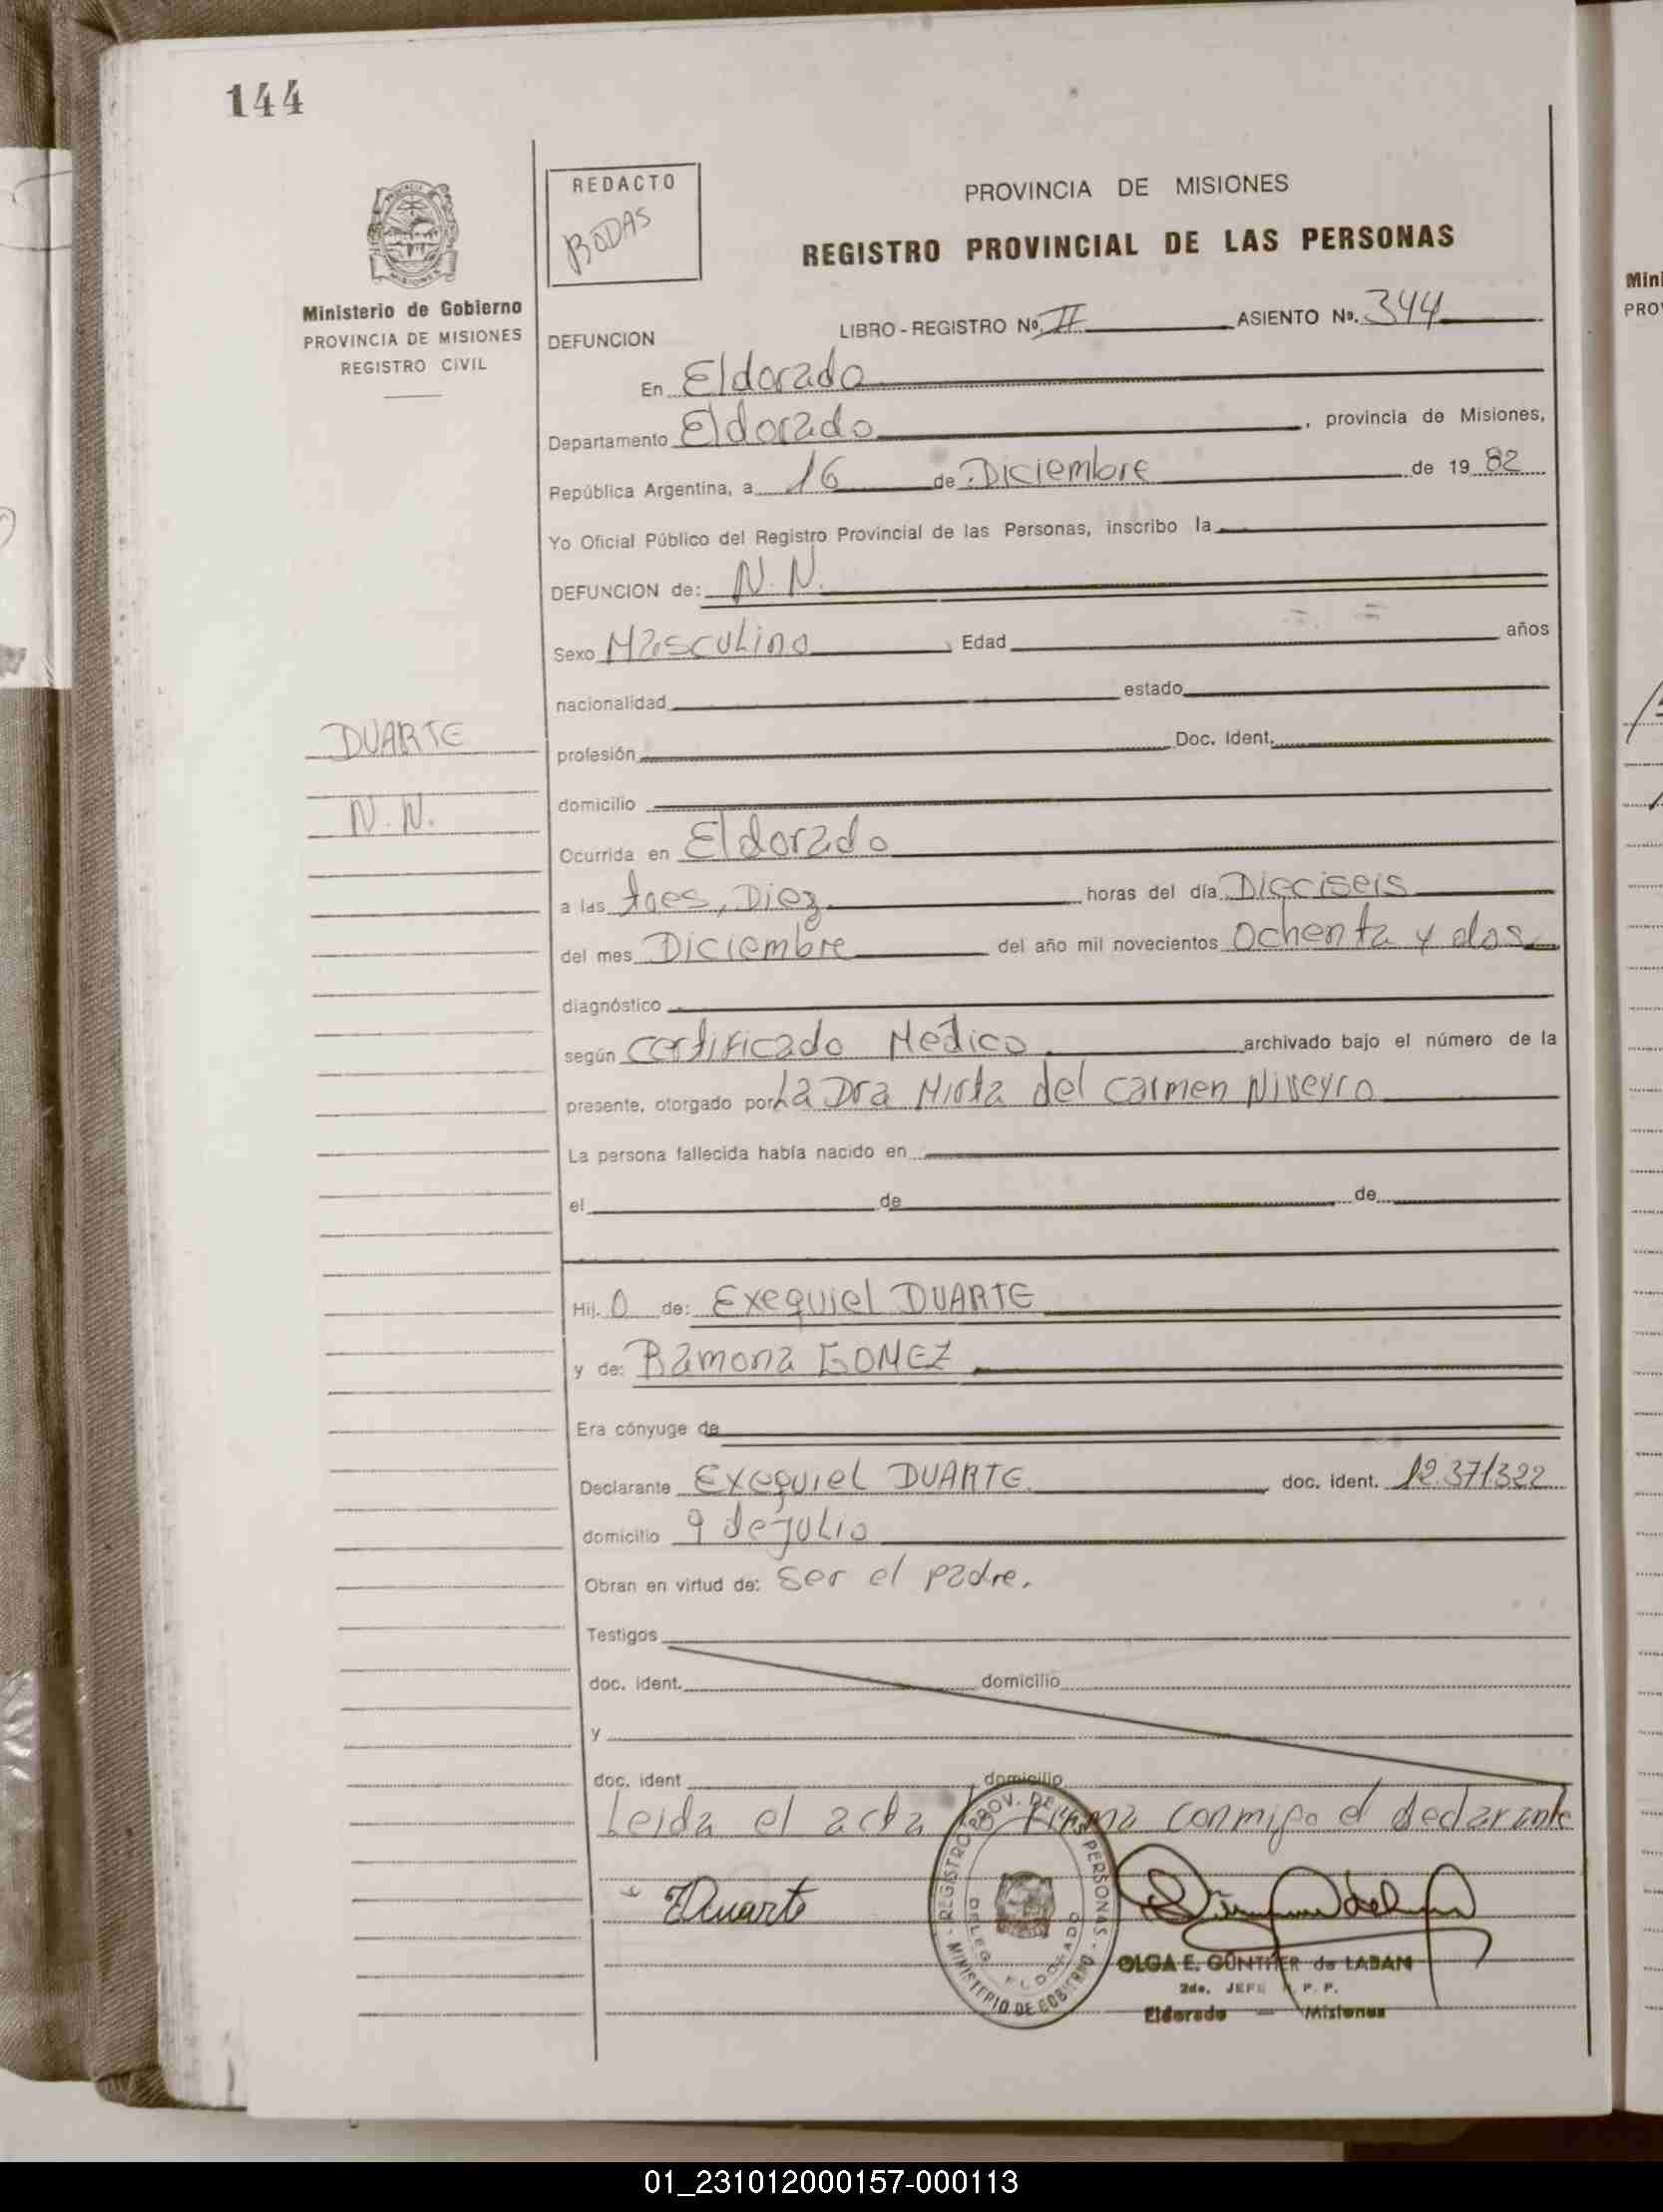 144
REDACTO
BODAS
PROVINCIA DE MISIONES
REGISTRO PROVINCIAL DE LAS PERSONAS
Ministerio de Gobierno
PROVINCIA DE MISIONES
REGISTRO CIVIL
DEFUNCION LIBRO - REGISTRO Nº II ASIENTO Nº. 344
En Eldorado
Departamento Eldorado, provincia de Misiones,
República Argentina, a 16 de Diciembre de 1982
Yo Oficial Público del Registro Provincial de las Personas, inscribo la
DEFUNCION de: N. N.
Sexo Masculino, Edad años
nacionalidad estado
DUARTE
profesión Doc. Ident.
N. N.
domicilio
Ocurrida en Eldorado
a las tres, Diez horas del día Dieciseis
del mes Diciembre del año mil novecientos Ochenta y dos
diagnóstico
según Certificado Medico archivado bajo el número de la
presente, otorgado por La Dra Mirta del Carmen Niveyro
La persona fallecida había nacido en
el de de
Hij. O de: Exequiel DUARTE
y de: Ramona GOMEZ
Era cónyuge de
Declarante Exequiel DUARTE doc. ident. 12.371.322
domicilio 9 de Julio
Obran en virtud de: Ser el padre.
Testigos
doc. ident. domicilio
y
doc. ident domicilio
Leida el acta la firma conmigo el declarante
EDuarte
REGISTRO PROV. DE LAS PERSONAS - MINISTERIO DE GOBIERNO -
DELEG. ELDORADO
OLGA E. GÜNTHER de LABAN
2da. JEFE R. P. P.
Eldorado — Misiones
Mini
PRO
01_231012000157-000113